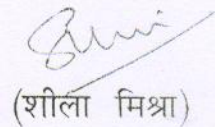 (शीला मिश्रा)